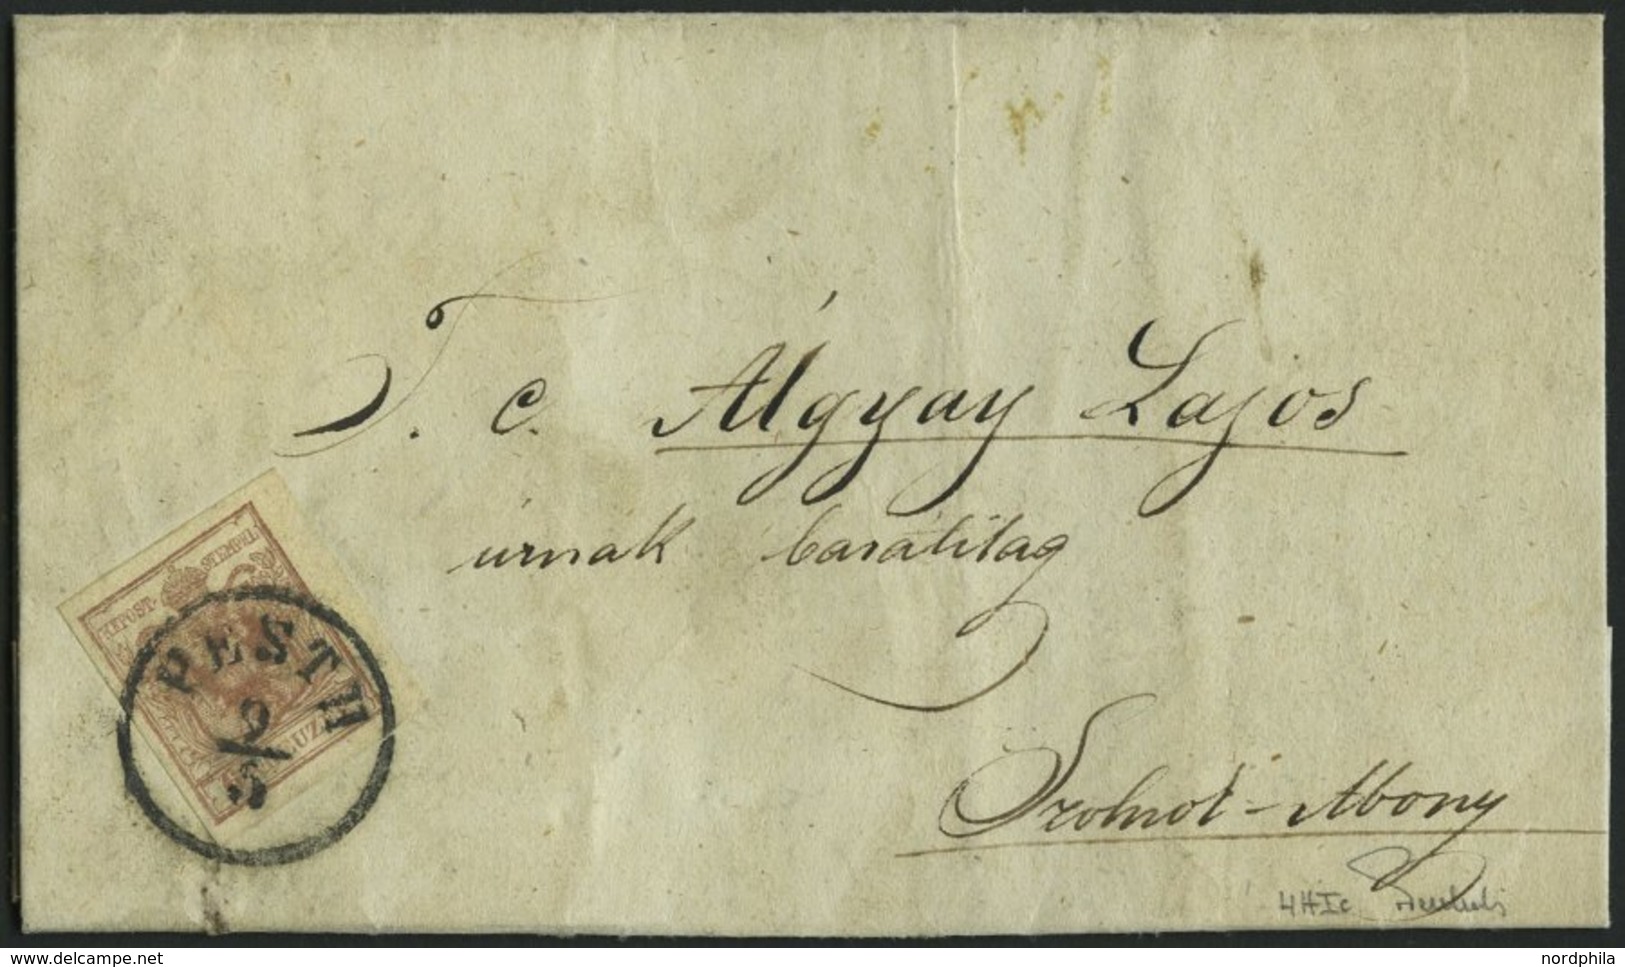 T. c. Álgyay Lajos
úrnak barátilag
Szolnok-Abony
KK POST-STEMPEL
PESTH
9/5
4HIc
www.delcampe.net
nordphila